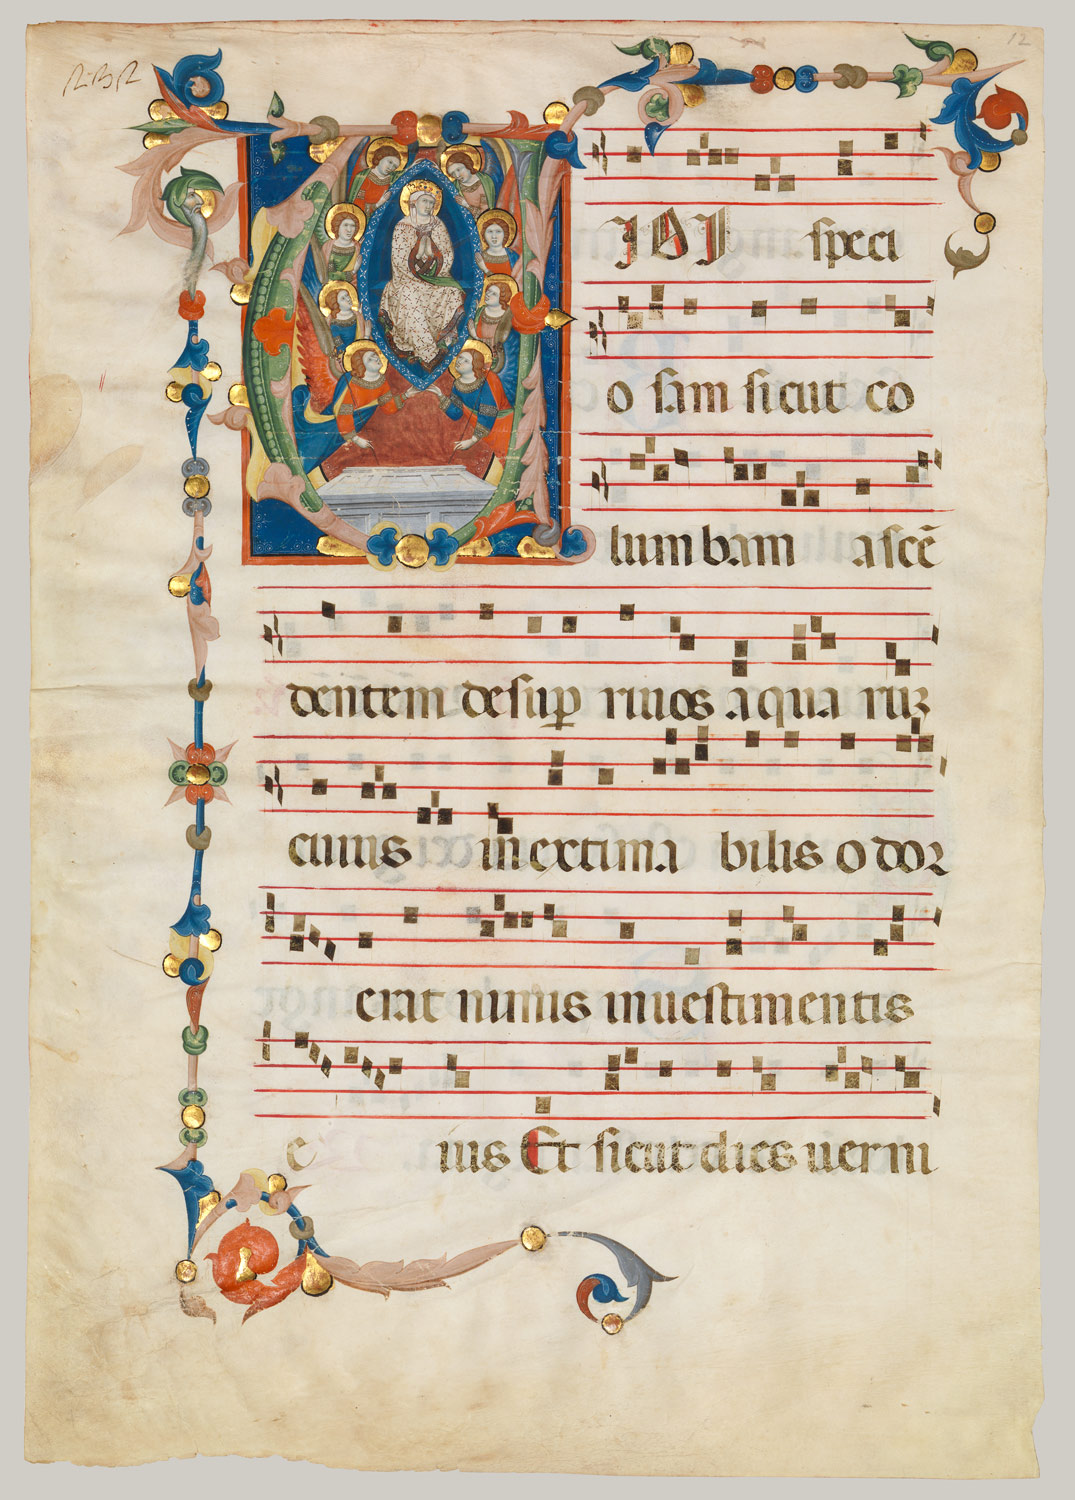 12
VIDI speci
o sam sicut co
lumbam ascē
dentem desup rivos aquaruʒ
cuius inextima bilis odor
erat nimis in vestimentis
e ius Et sicut dies verni